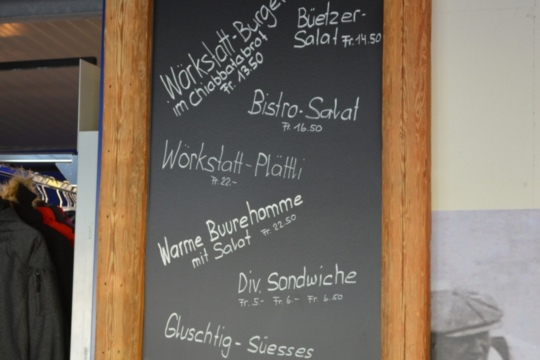 Wörkstatt-Burger
im Chiabbatabrot
Fr. 13.50
Büetzer-
Salat Fr. 14.50
Bistro-Salat
Fr. 16.50
Wörkstatt-Plättli
Fr. 22.-
Warme Buurehomme
mit Salat Fr. 22.50
Div. Sondwiche
Fr. 5.- Fr. 6.- Fr. 6.50
Gluschtig-Süesses